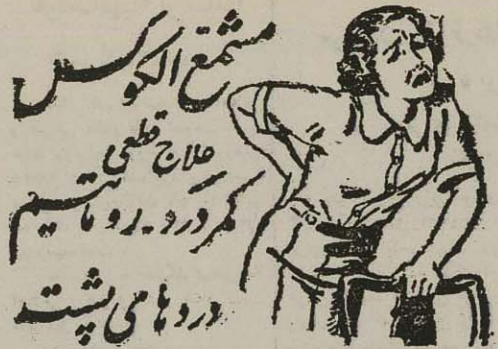 مشمع الکوکس
علاج قطعی
کمردرد. روماتیسم
دردهای پشت